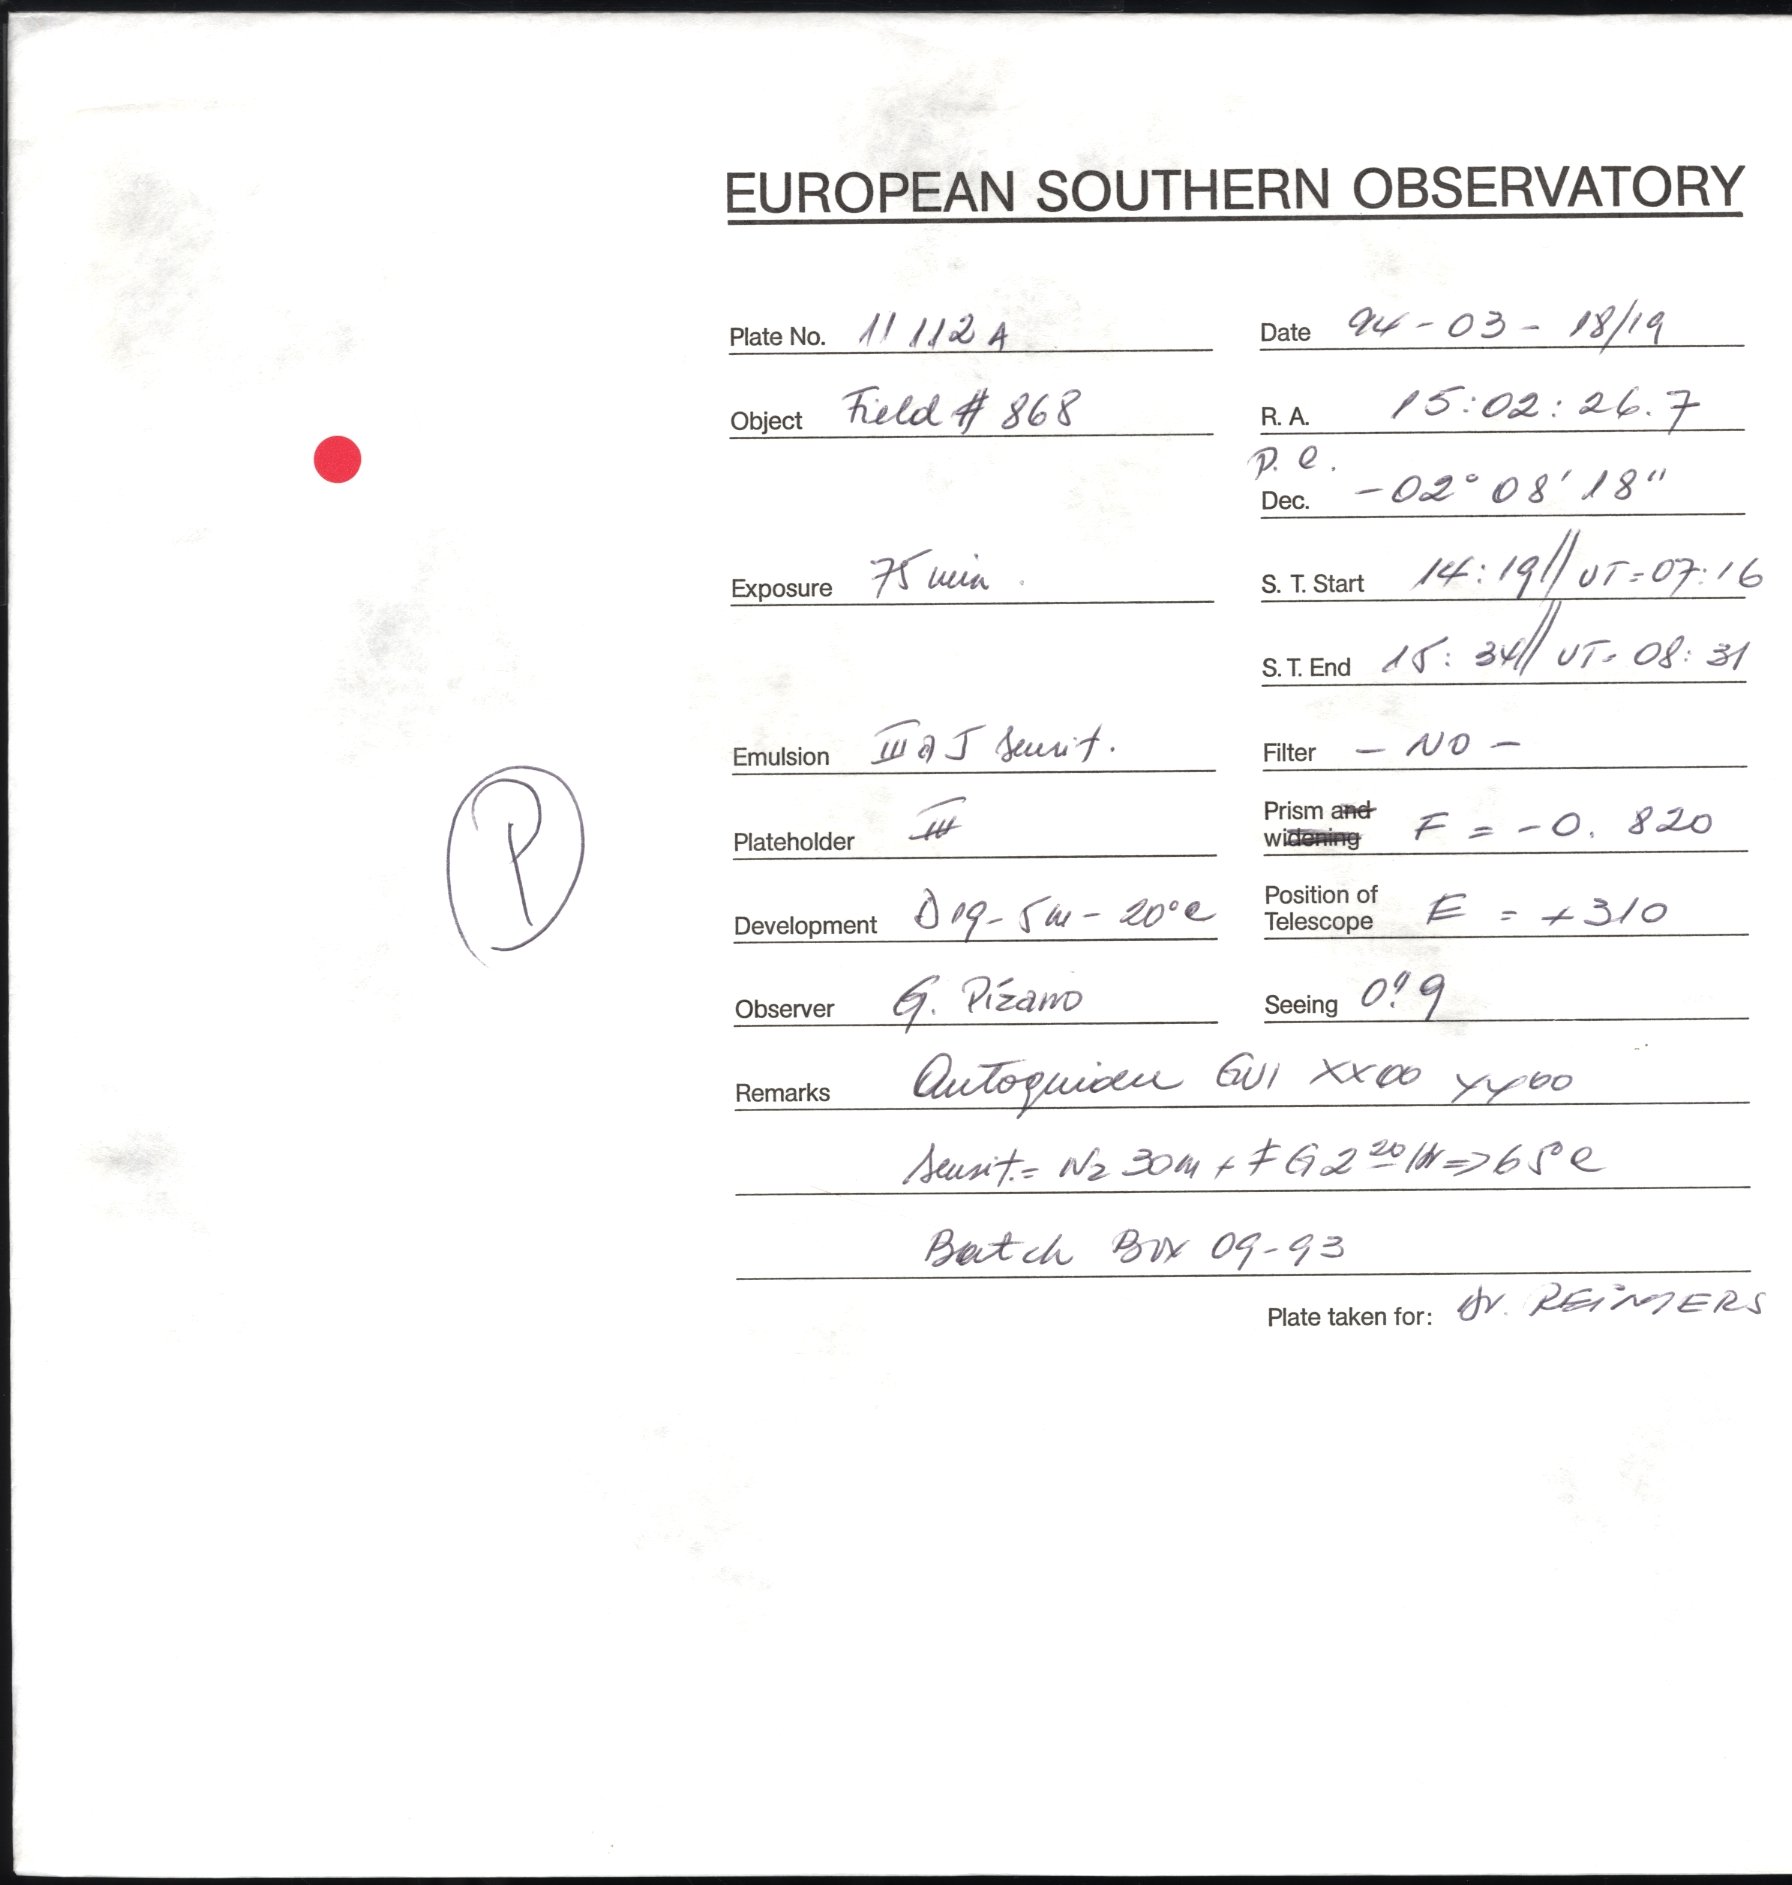 EUROPEAN SOUTHERN OBSERVATORY
Plate No. 11112A Date 94-03-18/19
Object Field # 868 R. A. 15:02:26.7
P. C.
Dec. -02° 08' 18"
Exposure 75 min. S. T. Start 14:19// UT=07:16
S. T. End 15:34// UT=08:31
Emulsion III a J Sensit. Filter - NO -
P
Plateholder III Prism and widening F = -0.820
Development D19-5m-20°C Position of Telescope E = +310
Observer G. Pizarro Seeing 0".9
Remarks Autoguider GUI XX00 YY00
Sensit.= N2 30m + FG2 20/Hr => 65°C
Batch Box 09-93
Plate taken for: Dr. REIMERS